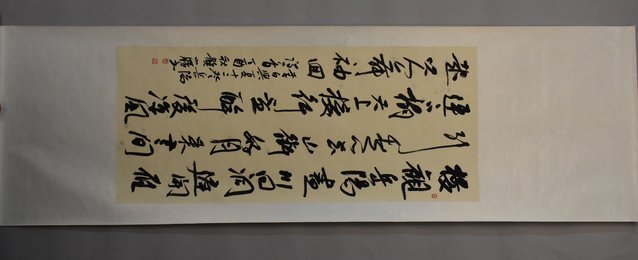 樓觀岳陽盡川迥洞庭開雁
引愁心去山銜好月來雲間
連下榻天上接行杯醉後涼風
起吹人舞袖回
李白與夏十二登岳陽
丁酉秋